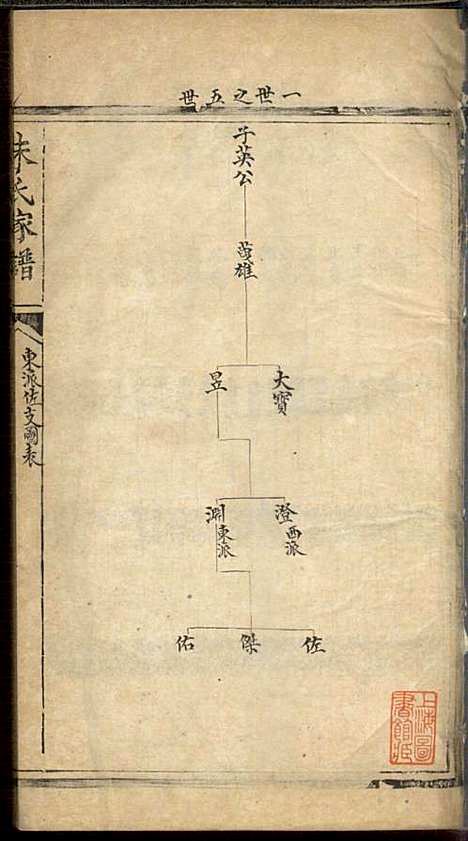 一世之五世
子英公
茂雄
大寶
昱
澄西派
淵東派
佐
傑
佑
朱氏家譜
東派佐支圖表
上海圖書館藏